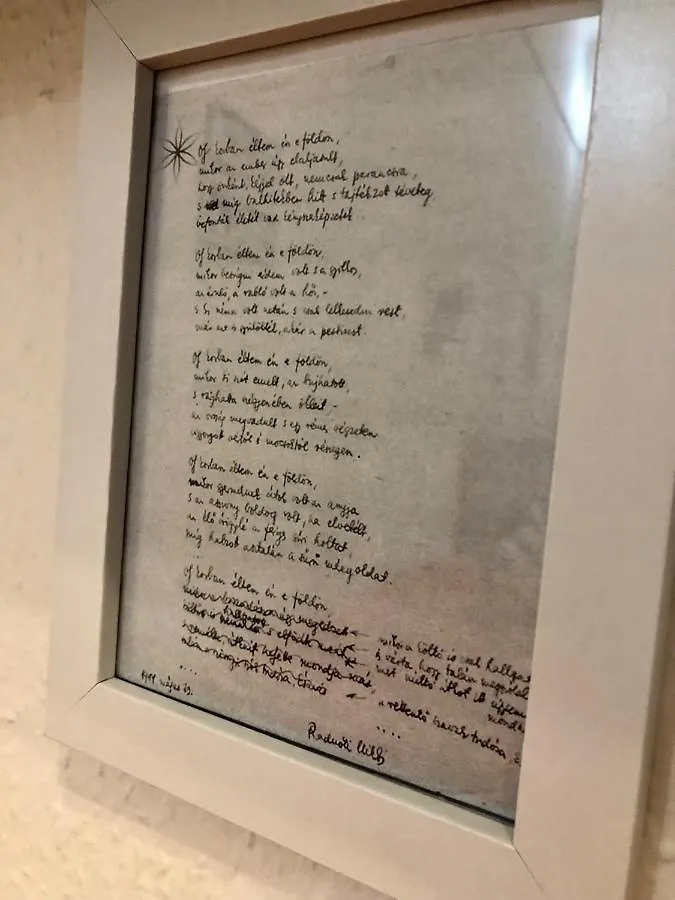 Oly korban éltem én e földön,
mikor az ember úgy elaljasult,
hogy önként, kéjjel ölt, nemcsak parancsra,
s míg balhitekben hitt s tajtékzott téveteg,
befonták életét vad kényszerképzetek.
Oly korban éltem én e földön,
mikor besúgni érdem volt s a gyilkos,
az áruló, a rabló volt a hős, –
s ki néma volt netán s csak lelkesedni rest,
már azt is gyűlölték, akár a pestisest.
Oly korban éltem én e földön,
mikor ki szót emelt, az bujhatott,
s rághatta szégyenében ökleit –
az ország megvadult s egy rémes végzeten
vigyorgott vértől s mocsoktól részegen.
Oly korban éltem én e földön,
mikor gyermeknek átok volt az anyja
s az asszony boldog volt, ha elvetélt,
az élő írigylé a férges síri holtat,
míg habzott asztalán a sűrű méregoldat.
....
Oly korban éltem én e földön
mikor a költő is csak hallgat
s várta, hogy talán megszólal
mert méltó átkot itt úgysem
mondha
a rettentő szavak tudósa, É
....
1944. május 19.
....
Radnóti Miklós